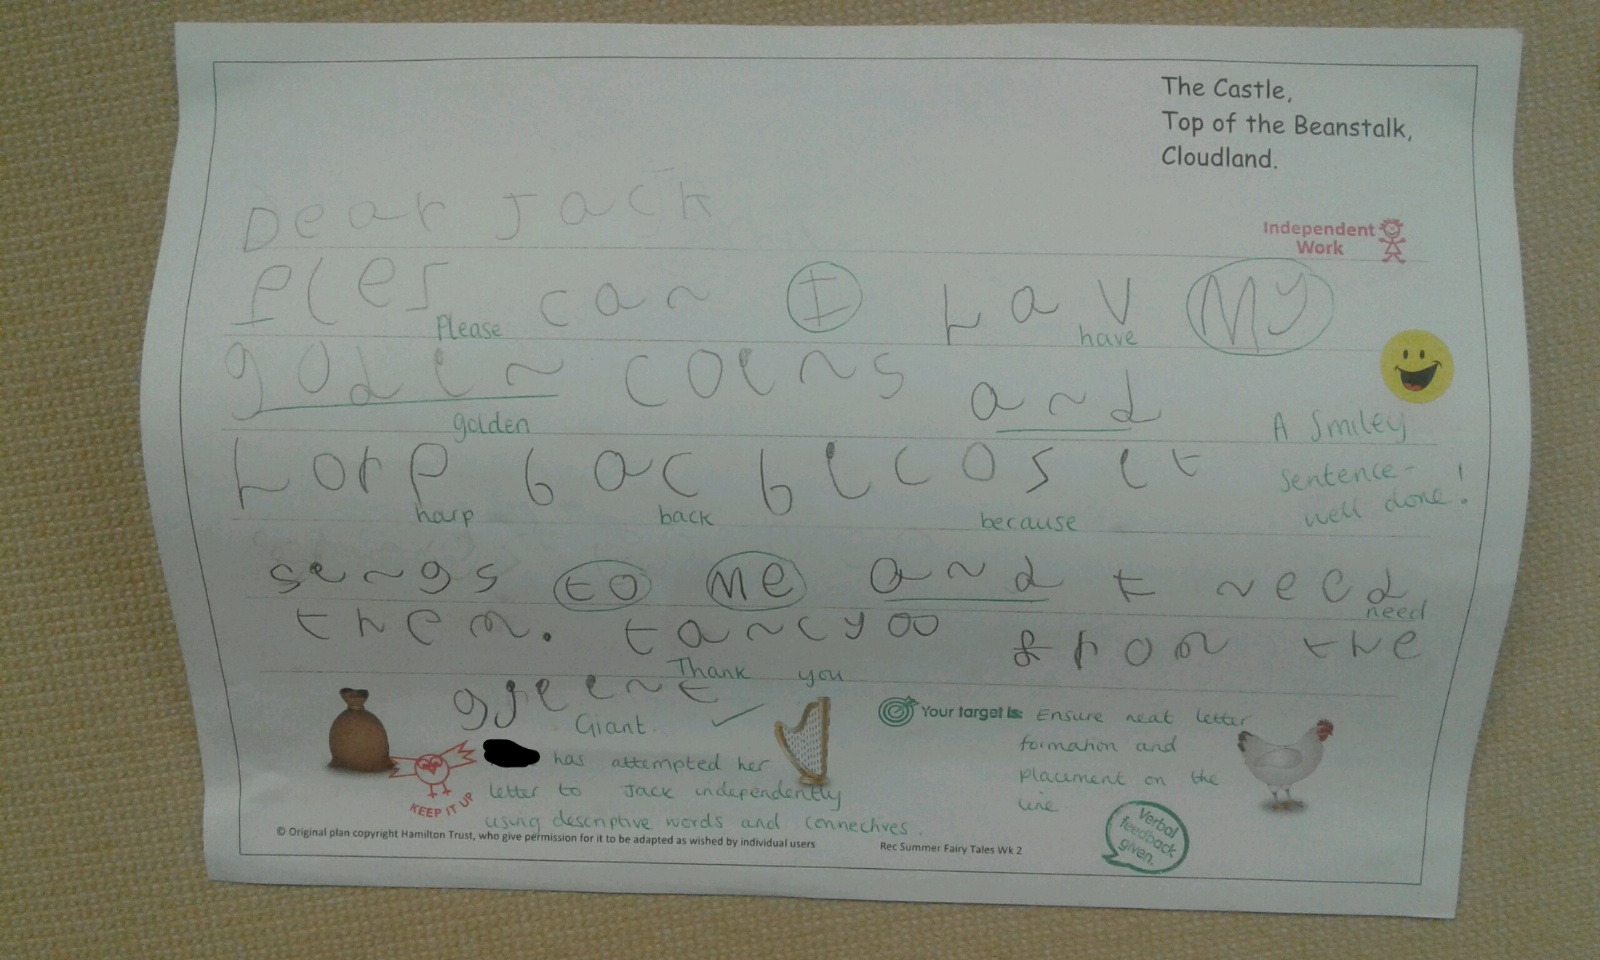 The Castle,
Top of the Beanstalk,
Cloudland.
Dear Jack
Independent
Work
Ples can I hav My
Please have
golen coens and
golden
A Smiley
horp bac becos it
Sentence -
harp back because
well done!
sengs to me and t need
need
them. tancyoo from the
Thank you
gjeent
Giant.
Your target is: Ensure neat letter
formation and
placement on the
line
has attempted her
letter to Jack independently
using descriptive words and connectives.
KEEP IT UP
Verbal
feedback
given.
© Original plan copyright Hamilton Trust, who give permission for it to be adapted as wished by individual users
Rec Summer Fairy Tales Wk 2